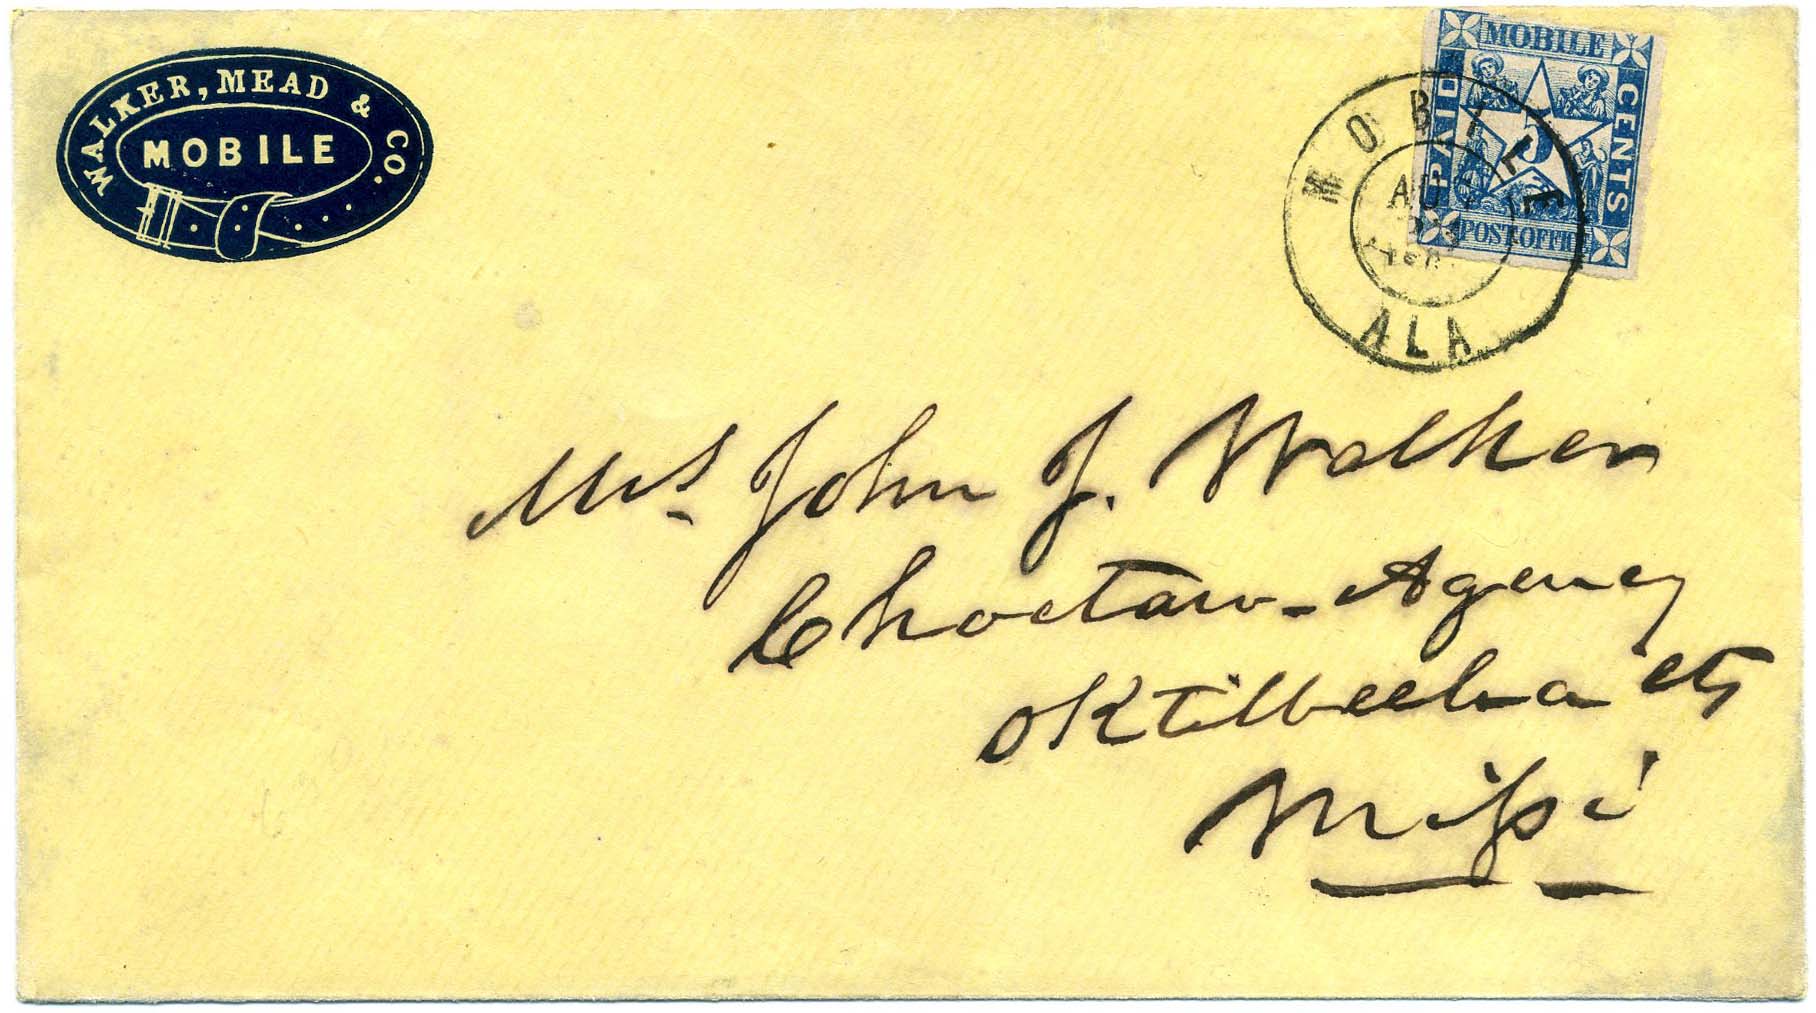 WALKER, MEAD & CO.
MOBILE
MOBILE
PAID
5
CENTS
POST OFFICE
MOBILE
AU
ALA
Mrs John J. Walker
Choctaw-Agency
Oktibbeeha cty
Missi